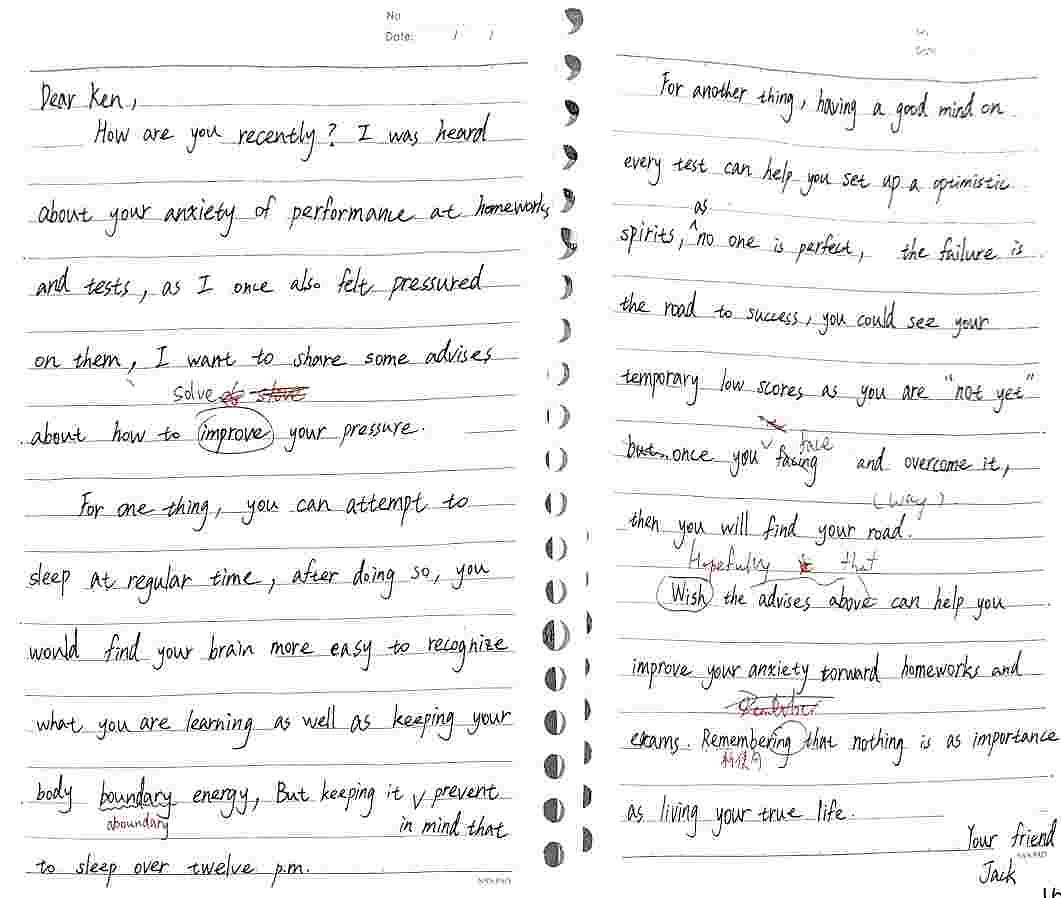 No
Date: / /
Dear Ken,
How are you recently? I was heard
about your anxiety of performance at homeworks
and tests, as I once also felt pressured
on them, I want to share some advises
solve
about how to improve your pressure.
For one thing, you can attempt to
sleep at regular time, after doing so, you
would find your brain more easy to recognize
what you are learning as well as keeping your
body boundary energy, But keeping it prevent
aboundary
in mind that
to sleep over twelve p.m.
For another thing, having a good mind on
every test can help you set up a optimistic
as
spirits, no one is perfect, the failure is
the road to success, you could see your
temporary low scores as you are "not yet"
face
but once you facing and overcome it,
(way)
then you will find your road.
Hopefully that
Wish the advises above can help you
improve your anxiety torward homeworks and
Remember
exams. Remembering that nothing is as importance
祈使句
as living your true life.
Your friend
Jack